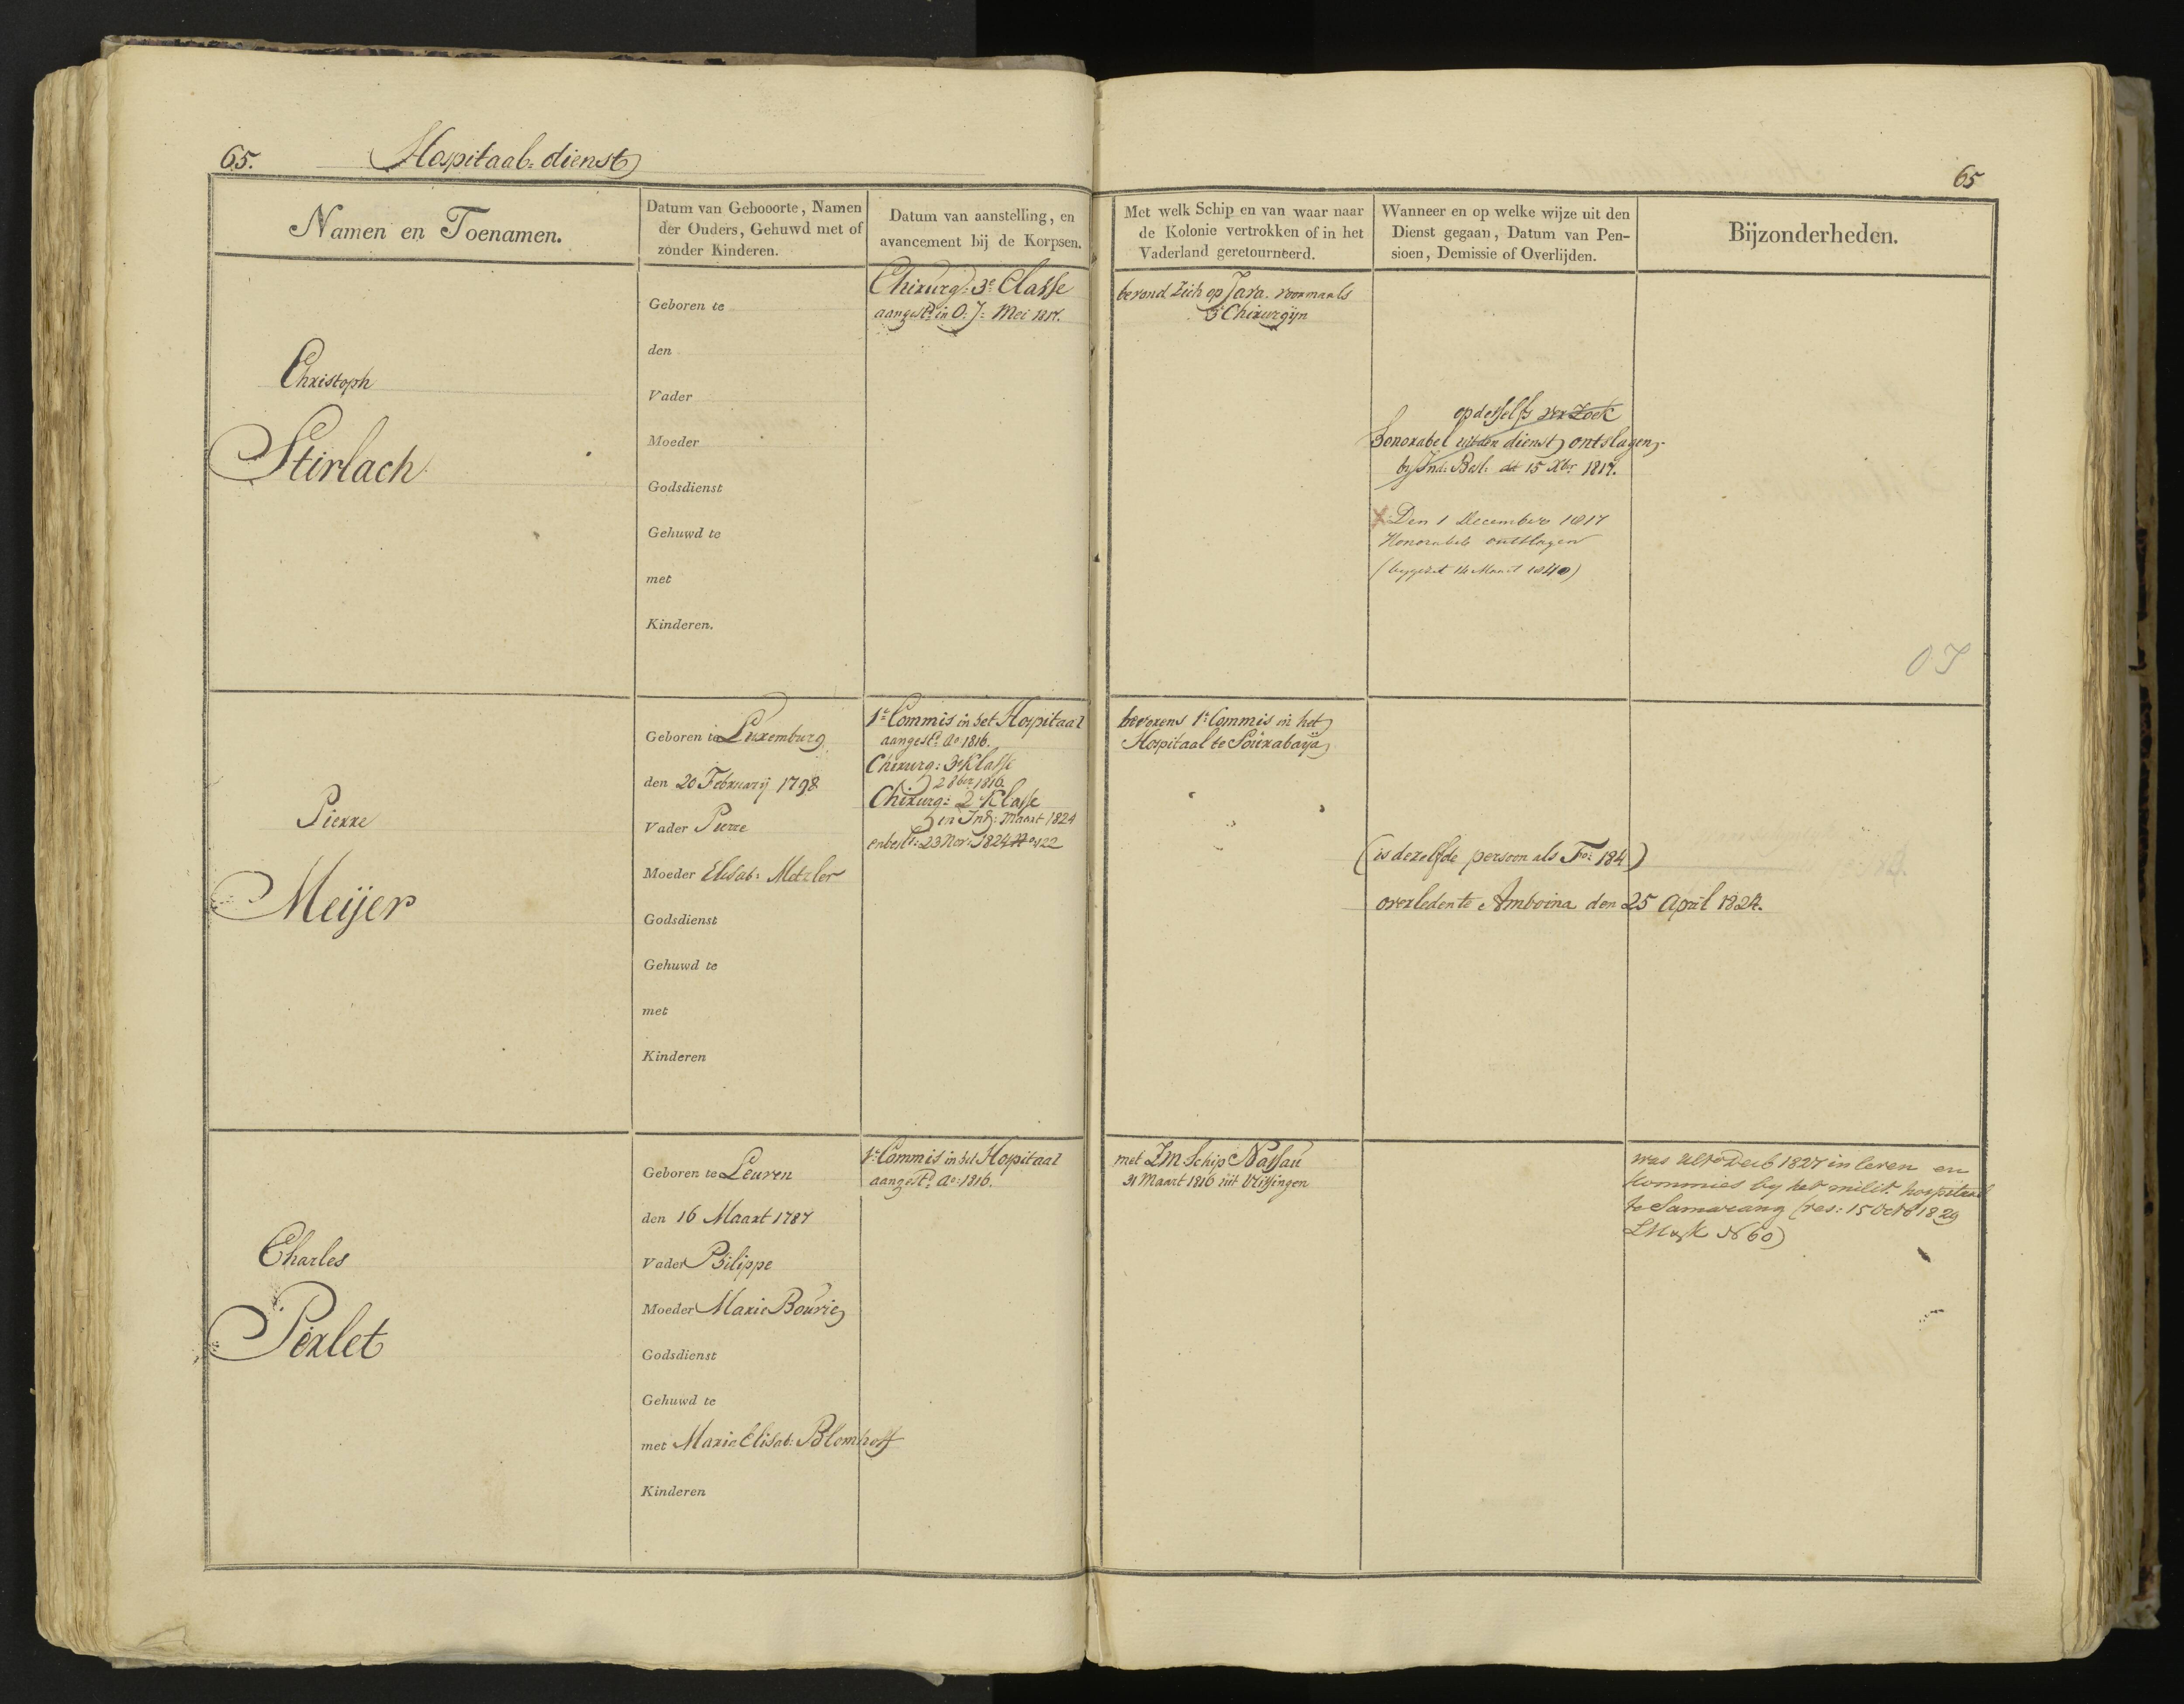 65.
Hospitaal-dienst
65
Namen en Toenamen.
Datum van Gebooorte, Namen
der Ouders, Gehuwd met of
zonder Kinderen.
Datum van aanstelling, en
avancement bij de Korpsen.
Met welk Schip en van waar naar
de Kolonie vertrokken of in het
Vaderland geretourneerd.
Wanneer en op welke wijze uit den
Dienst gegaan, Datum van Pen-
sioen, Demissie of Overlijden.
Bijzonderheden.
Christoph
Stirlach.
Geboren te
den
Vader
Moeder
Godsdienst
Gehuwd te
met
Kinderen.
Chirurg: 3e Classe
aangestd in O. J: Mei 1817.
bevond zich op Java. voormaals
3e Chirurgijn
op desselfs verzoek
honorabel uit den dienst ontslagen,
by Ind: Besl: dd 15 Xbr 1817.
Den 1 December 1817
Honorabel ontslagen
(bygezet 14 Maart 1840)
O J
Pierre
Meijer
Geboren te Luxemburg
den 20 Februarij 1798
Vader Pierre
Moeder Elisab: Metzler
Godsdienst
Gehuwd te
met
Kinderen
1e Commis in het Hospitaal
aangestd Ao 1816.
Chirurg: 3e Klasse
2 8ber 1816.
Chirurg: 2e Klasse
in Ind: Maart 1824
en beslt: 23 Nov: 1824 No 22
bevorens 1e Commis in het
Hospitaal te Sourabaija
(is dezelfde persoon als Fo: 184)
overleden te Amboina den 25 April 1824.
Charles
Perlet
Geboren te Leuven
den 16 Maart 1787
Vader Philippe
Moeder Marie Bourie
Godsdienst
Gehuwd te
met Maria Elisab: Blomhoff
Kinderen
1e Commis in het Hospitaal
aangestd Ao: 1816.
met ZM Schip Nassau
31 Maart 1816 uit Vlissingen
was ulto Decb 1827 in leven en
kommies by het milit. hospitaal
te Samarang (res: 15 Octb 1829
N 60)